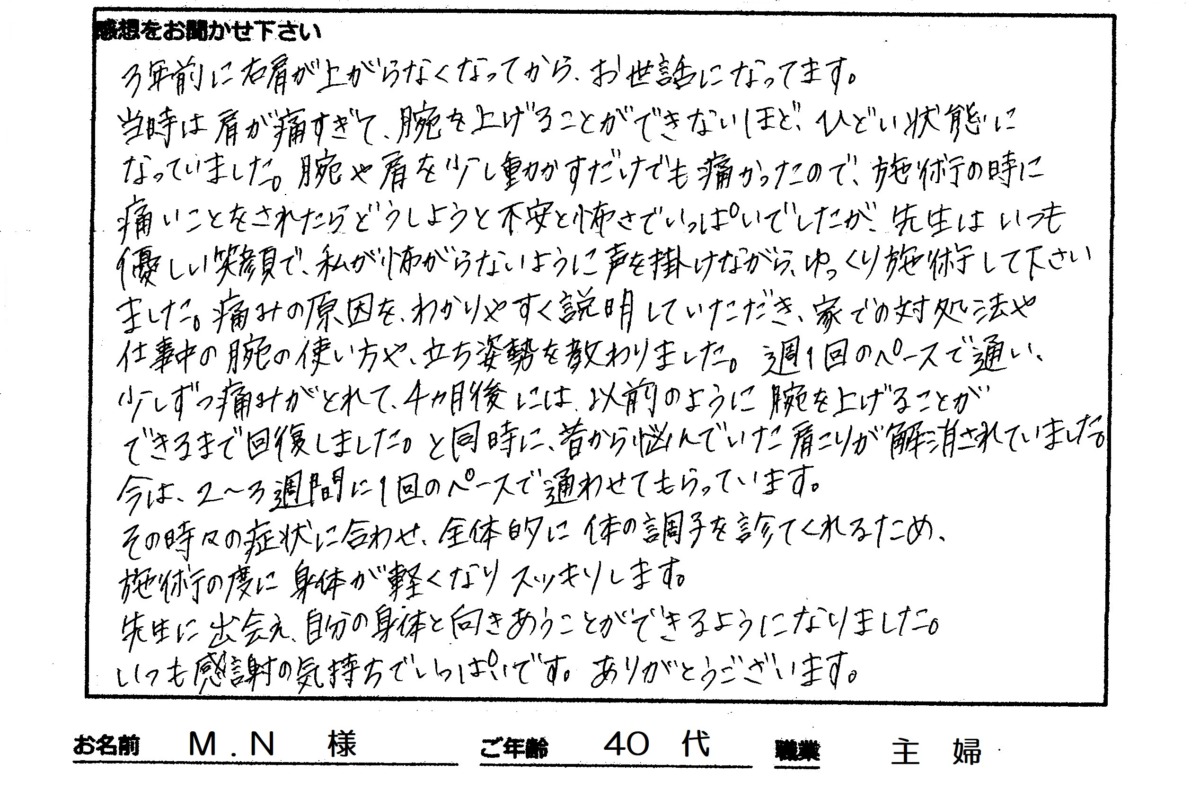 感想をお聞かせ下さい
3年前に右肩が上がらなくなってから、お世話になってます。
当時は肩が痛すぎて、腕を上げることができないほど、ひどい状態に
なっていました。腕や肩を少し動かすだけでも痛かったので、施術の時に
痛いことをされたらどうしようと不安と怖さでいっぱいでしたが、先生はいつも
優しい笑顔で、私が怖がらないように声を掛けながら、ゆっくり施術して下さい
ました。痛みの原因を、わかりやすく説明していただき、家での対処法や
仕事中の腕の使い方や、立ち姿勢を教わりました。週1回のペースで通い、
少しずつ痛みがとれて、4ヵ月後には、以前のように腕を上げることが
できるまで回復しました。と同時に、昔から悩んでいた肩こりが解消されていました。
今は、2〜3週間に1回のペースで通わせてもらっています。
その時々の症状に合わせ、全体的に体の調子を診てくれるため、
施術の度に身体が軽くなりスッキリします。
先生に出会え、自分の身体と向きあうことができるようになりました。
いつも感謝の気持ちでいっぱいです。ありがとうございます。
お名前 M.N 様 ご年齢 40 代 職業 主婦